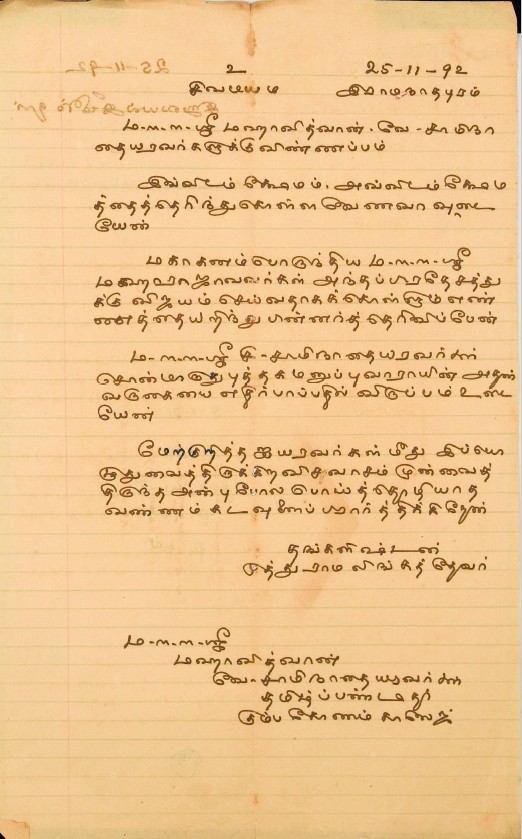 உ 25-11-92
சிவமயம இராமநாதபுரம்
ம-ள-ள-ஸ்ரீ மஹாவித்வான். வே-சாமிநா
தையரவர்களுக்கு விண்ணப்பம்
இவ்விடம் க்ஷேமம். அவ்விடம் க்ஷேம
த்தைத்தெரிந்துகொள்ள வேணவா வுடை
யேன்
மகாகனம்பொருந்திய ம-ள-ள-ஸ்ரீ
மஹாராஜாவவர்கள் அந்தப்பிரதேசத்து
க்கு விஜயம் செய்வதாகக்கொள்ளும் எண்
ணத்தையறிந்து பின்னர்த் தெரிவிப்பேன்
ம-ள-ள-ஸ்ரீ சி-சாமிநாதையரவர்கள்
சொன்மாருது புத்தகமனுப்புவாராயின் அதன்
வருகையை எதிர்பார்ப்பதில் விருப்பம் உடை
யேன்
மேற்குறித்த ஐயரவர்கள் மீது இப்பொ
ழுதுவைத்திருக்கிற விசுவாசம் முன்வைத்
திருந்த அன்புபோல பொய்த்தொழியாத
வண்ணம் கடவுளைப் பிரார்த்திக்கிறேன்
தங்களிஷ்டன்
முத்துராமலிங்கத்தேவர்
ம-ள-ள-ஸ்ரீ
மஹாவித்வான்
வே-சாமிநாதையரவர்கள்
தமிழ்ப்பண்டிதர்
கும்பகோணம் காலேஜ்